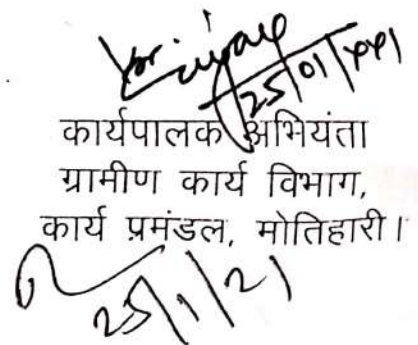 25/01/
कार्यपालक अभियंता
ग्रामीण कार्य विभाग,
कार्य प्रमंडल, मोतिहारी।
25/1/21